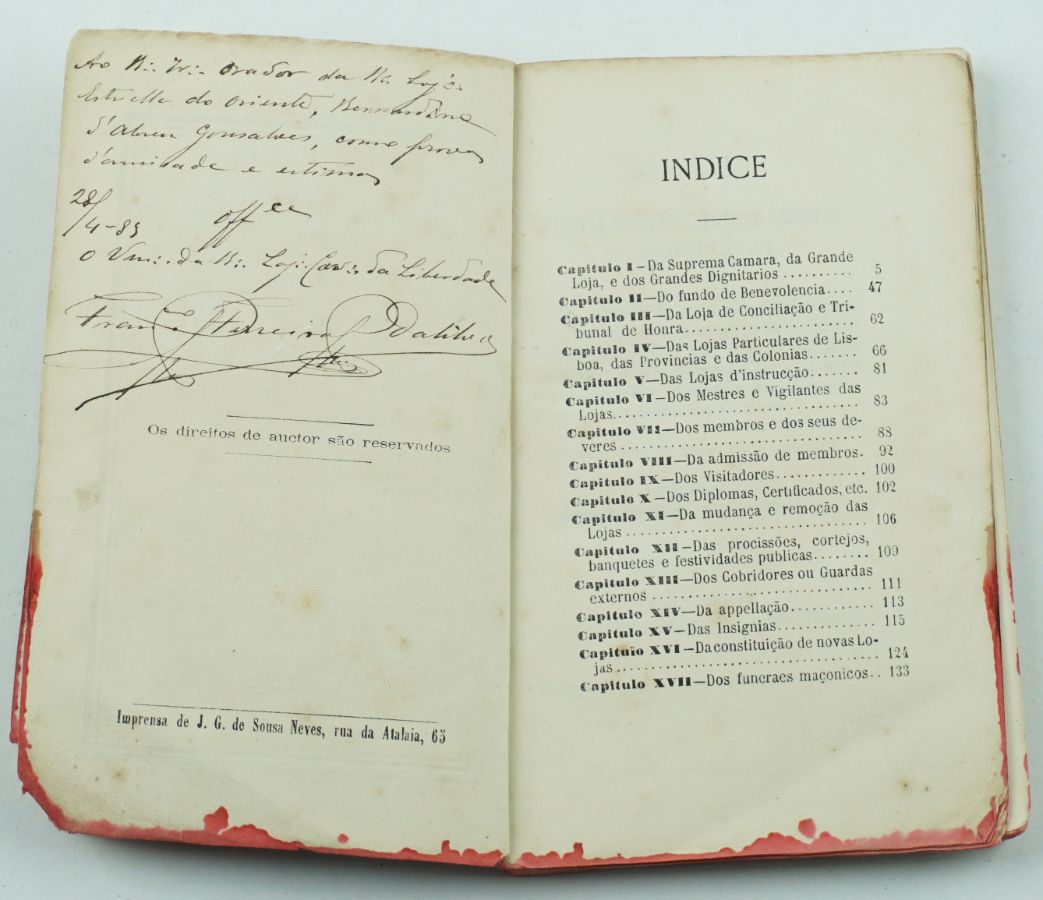 Ao R∴ Ir∴ Orador da R∴ Loj∴
Estrella do Oriente, Bernardino
d'Abreu Gonsalves, como prova
d'amisade e estima
28/4-85
off.ce
O Ven∴ da R∴ Loj∴ Cav∴ da Liberdade
Ferreira
Os direitos de auctor são reservados
Imprensa de J. G. de Sousa Neves, rua da Atalaia, 65
INDICE
Capitulo I—Da Suprema Camara, da Grande
Loja, e dos Grandes Dignitarios .......... 5
Capitulo II—Do fundo de Benevolencia.... 47
Capitulo III—Da Loja de Conciliação e Tri-
bunal de Honra......................... 62
Capitulo IV—Das Lojas Particulares de Lis-
boa, das Provincias e das Colonias....... 66
Capitulo V—Das Lojas d'instrucção....... 81
Capitulo VI—Dos Mestres e Vigilantes das
Lojas.................................... 83
Capitulo VII—Dos membros e dos seus de-
veres.................................... 88
Capitulo VIII—Da admissão de membros. 92
Capitulo IX—Dos Visitadores............ 100
Capitulo X—Dos Diplomas, Certificados, etc. 102
Capitulo XI—Da mudança e remoção das
Lojas.................................... 106
Capitulo XII—Das procissões, cortejos,
banquetes e festividades publicas........ 109
Capitulo XIII—Dos Cobridores ou Guardas
externos................................. 111
Capitulo XIV—Da appellação............ 113
Capitulo XV—Das Insignias.............. 115
Capitulo XVI—Da constituição de novas Lo-
jas...................................... 124
Capitulo XVII—Dos funeraes maçonicos.. 133